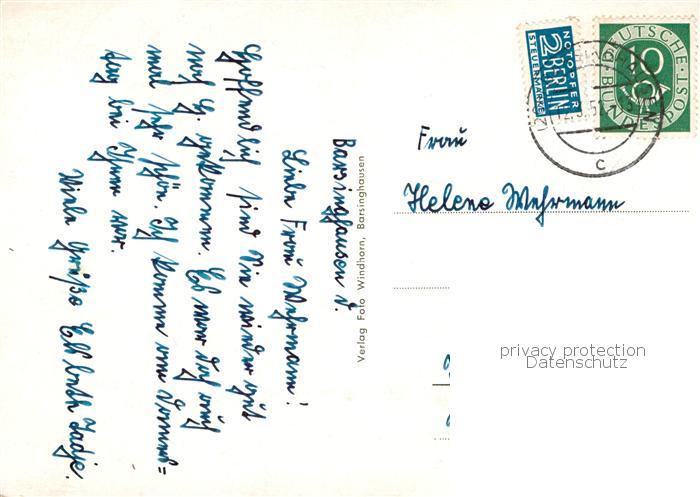 Barsinghausen d.
Liebe Frau Wehrmann!
Hoffendlich sind Sie wieder gut
nach H. gekommen. Es war doch auch
mal sehr schön. Ich komme am Donners=
tag bei Ihnen vor.
Viele Grüße Elsbeth
Verlag Foto Windhorn, Barsinghausen
NOTOPFER
2 BERLIN
STEUERMARKE
DEUTSCHE
10
BUNDESPOST
c
Frau
Helene Wehrmann
privacy protection
Datenschutz